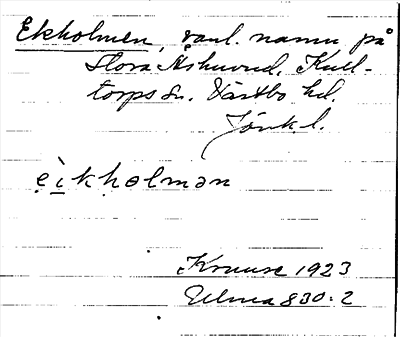 Ekholmen, vanl. namn på
Stora Åshuvud, Kull-
torps sn. Västbo hd.
Jönk. l.
ẹ̀ịkḥolmən
Krause 1923
Ulma 830:2